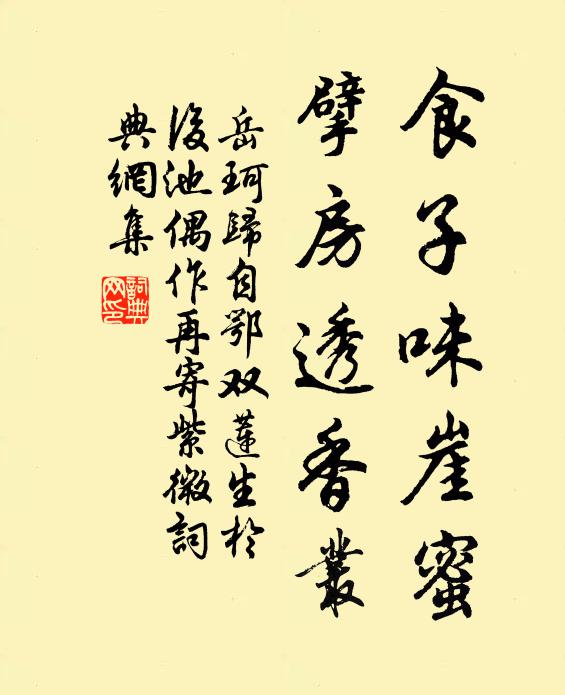 食子味崖蜜
擘房透香叢
岳珂歸自鄂双蓮生於
後池偶作再寄紫微詞
典網集
詞典
网印